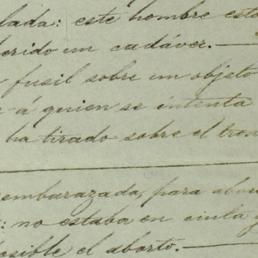 lada: este hombre esta
herido un cadáver.—
fusil sobre un objeto
á quien se intenta
ha tirado sobre el tren
embarazada, para abor
: no estaba en cinta y
posible el aborto.—